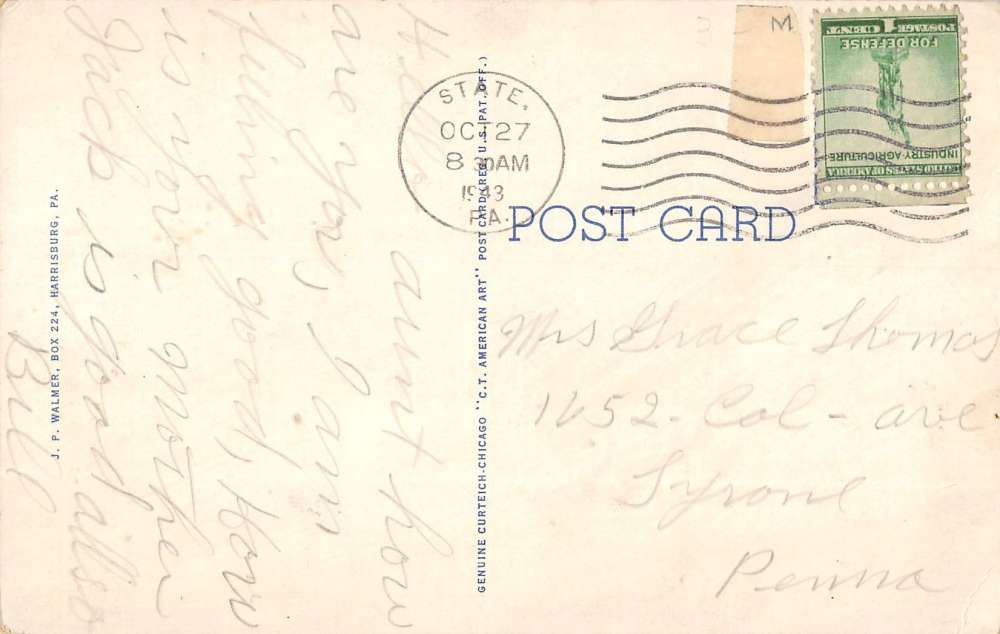 Hello aunt how
are you, I am
fine good, How
is your mother
Jack is good allso
Bill
J. P. WALMER, BOX 224, HARRISBURG, PA.
GENUINE CURTEICH-CHICAGO "C.T. AMERICAN ART" POST CARD (REG. U.S. PAT. OFF.)
STATE,
OCT 27
8 30 AM
1943
PA.
M
UNITED STATES OF AMERICA
INDUSTRY-AGRICULTURE
FOR DEFENSE
1 CENT POSTAGE
POST CARD
Mrs Grace Thomas
1652 - Col - ave
Tyrone
Penna